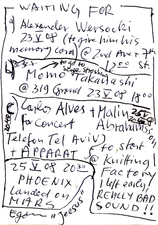 WAITING FOR
Alexander Wersocki
23 V 08 to give him his
memory card @ 2nd Ave + 7th
st.
Momo Takahashi
@ 319 Grand 23 V 08 18:00
Carlos Alves + Malin
for concert Abrahamsson
Telefon Tel Aviv
+ APPARAT to start
25 V 08 20:30 @ Knitting
PHOENIX Factory
landed on I left early!
MARS REALLY BAD
SOUND!!